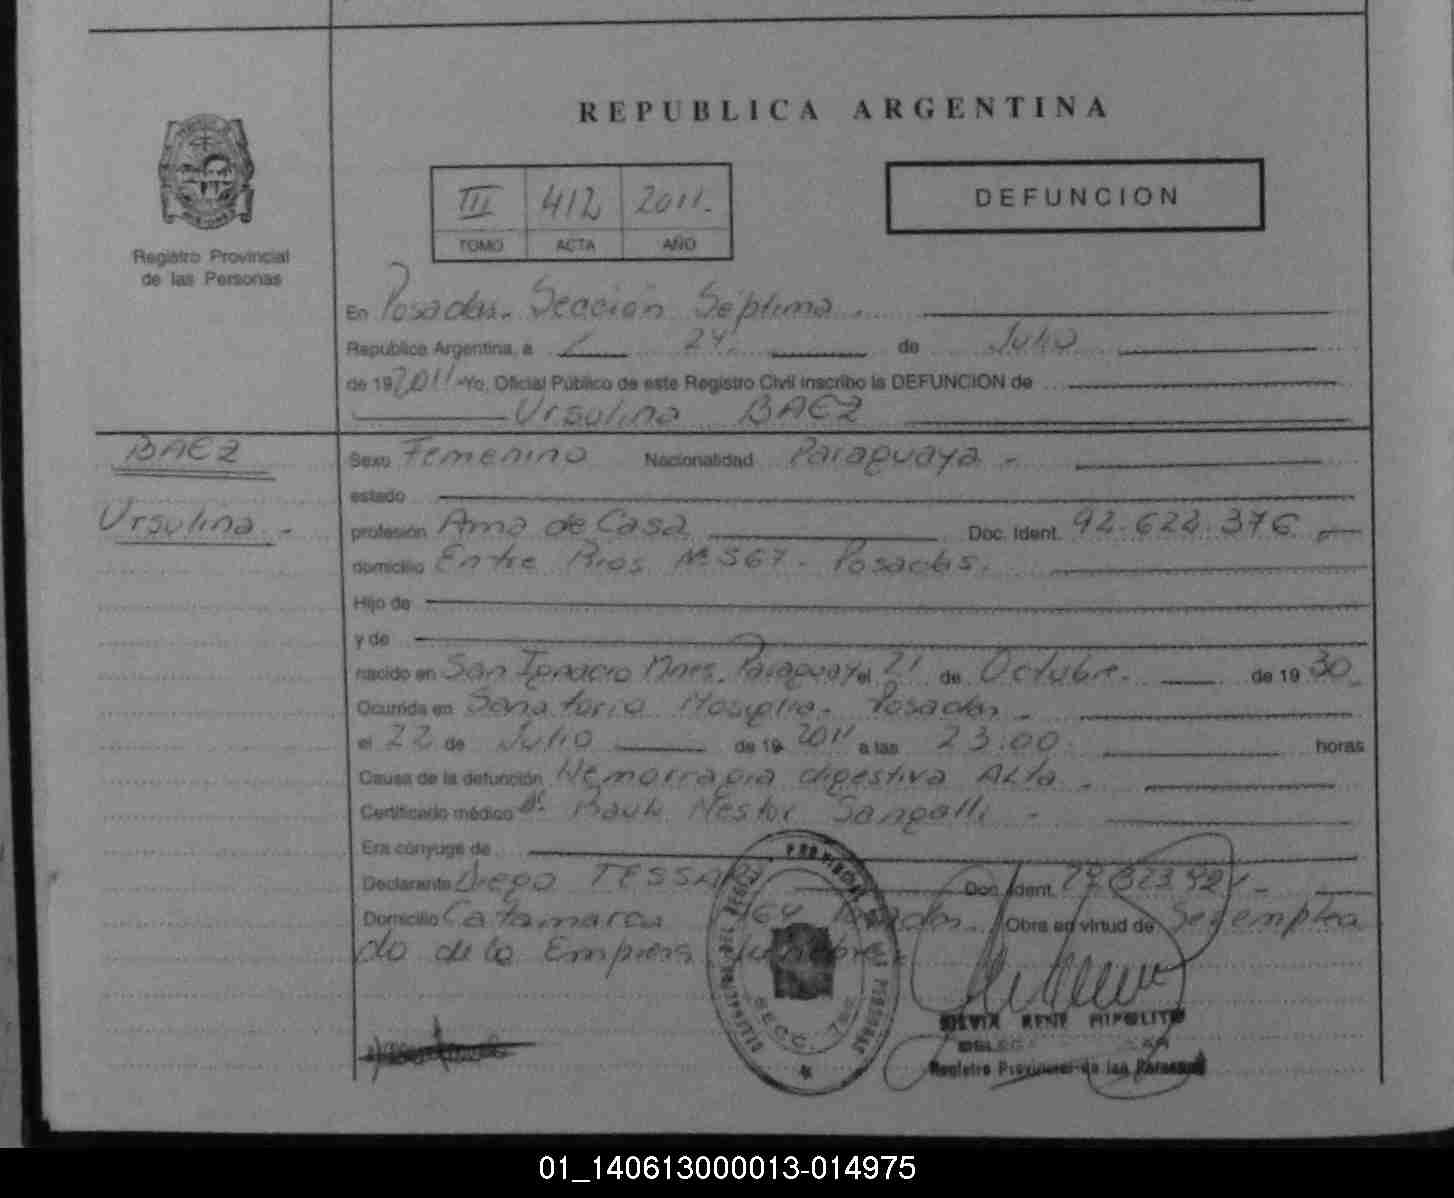 REPUBLICA ARGENTINA
III 412 2011.
TOMO ACTA AÑO
DEFUNCION
Registro Provincial
de las Personas
En Posadas. Sección Séptima.
Republica Argentina, a 24 de Julio
de 19 2011 - Yo, Oficial Público de este Registro Civil inscribo la DEFUNCION de
Ursulina BAEZ
BAEZ
Ursulina -
Sexo Femenino Nacionalidad Paraguaya -
estado
profesión Ama de Casa Doc. Ident. 92.622.376
domicilio Entre Rios Nº 567. Posadas.
Hijo de
y de
nacido en San Ignacio Mnes. Paraguay el 21 de Octubre. de 19 30.
Ocurrida en Sanatorio Posadas -
el 22 de Julio de 19 2011 a las 23.00 horas
Causa de la defunción Hemorragia digestiva Alta -
Certificado médico Dr. Raul Nestor Sangalli -
Era cónyuge de
Declarante Diego TESSARI Doc. Ident.
Domicilio Catamarca Posadas. Obra en virtud de Ser emplea
do de la Empresa
SECC. 7ma
SILVIA RENE HIPOLITO
Registro Provincial de las Personas
01_140613000013-014975